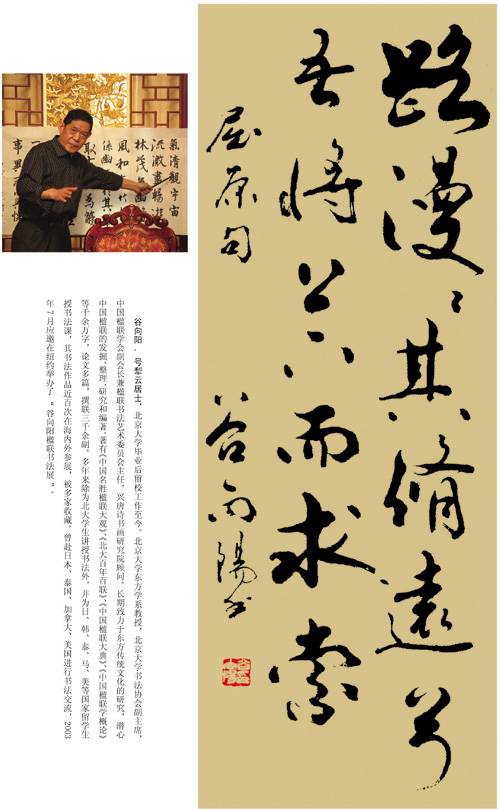 路漫〻其脩遠兮
吾将上下而求索
屈原句
谷向陽书
氣清觀宇宙
谷向阳，号犁云居士，北京大学毕业后留校工作至今。北京大学东方学系教授、北京大学书法协会副主席、
中国楹联学会副会长兼楹联书法艺术委员会主任，兴唐诗书画研究院顾问。长期致力于东方传统文化的研究，潜心
中国楹联的发掘、整理、研究和编著，著有《中国名胜楹联大观》、《北大百年百联》、《中国楹联大典》、《中国楹联学概论》
等千余万字，论文多篇，撰联三千余副。多年来除为北大学生讲授书法外，并为日、韩、泰、马、美等国家留学生
授书法课，其书法作品近百次在海内外参展，被多家收藏。曾赴日本、泰国、加拿大、美国进行书法交流，2003
年7月应邀在纽约举办了“谷向阳楹联书法展”。